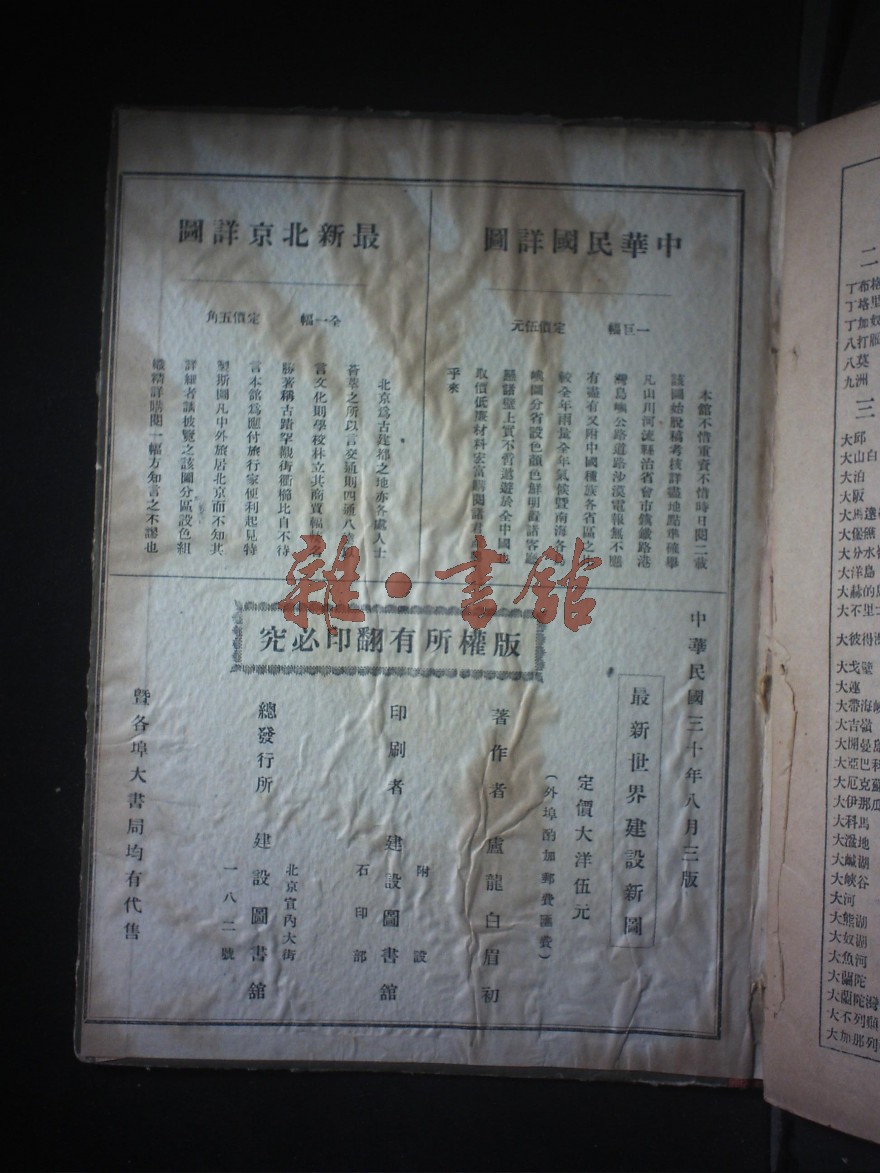 中華民國詳圖
一巨幅　定價伍元
本舘不惜重資不惜時日閱二載
該圖始脫稿考核詳盡地點準確舉
凡山川河流縣治省會市鎮鐵路港
灣島嶼公路道路沙漠電報無不應
有盡有又附中國種族各省區之
較全年雨量全年氣候暨南海各島
嶼圖分省設色顏色鮮明設諸客
懸諸壁上實不啻遨遊於全中國也
取價低廉材料宏富購閱諸君
乎來
最新北京詳圖
全一幅　定價五角
北京爲古建都之地亦各處人士
薈萃之所以言交通則四通八達
言文化則學校林立其商賈輻
勝著稱古蹟罕觀街衢櫛比自不待
言本舘爲應付旅行家便利起見特
製斯圖凡中外旅居北京而不知其
詳細者請披覽之該圖分區設色組
織精詳購閱一幅方知言之不謬也
版權所有翻印必究
中華民國三十年八月三版
最新世界建設新圖
定價大洋伍元
(外埠酌加郵費匯費)
著作者　盧龍白眉初
印刷者　建設圖書舘
附設
石印部
總發行所　建設圖書舘
北京宣內大街
一八二號
暨各埠大書局均有代售
雜·書館
二
丁布格
丁塔里
丁加奴
八打雁
八莫
九洲
三
大邱
大山白
大泊
大阪
大馬達
大堡礁
大分水
大洋島
大赫的
大不里士
大彼得
大戈壁
大連
大帶海
大吉嶺
大開曼
大亞巴科
大厄克
大伊那瓜
大科馬
大溼地
大鹹湖
大峽谷
大河
大熊湖
大奴湖
大魚河
大蘭陀
大蘭陀灣
大不列顛
大加那列